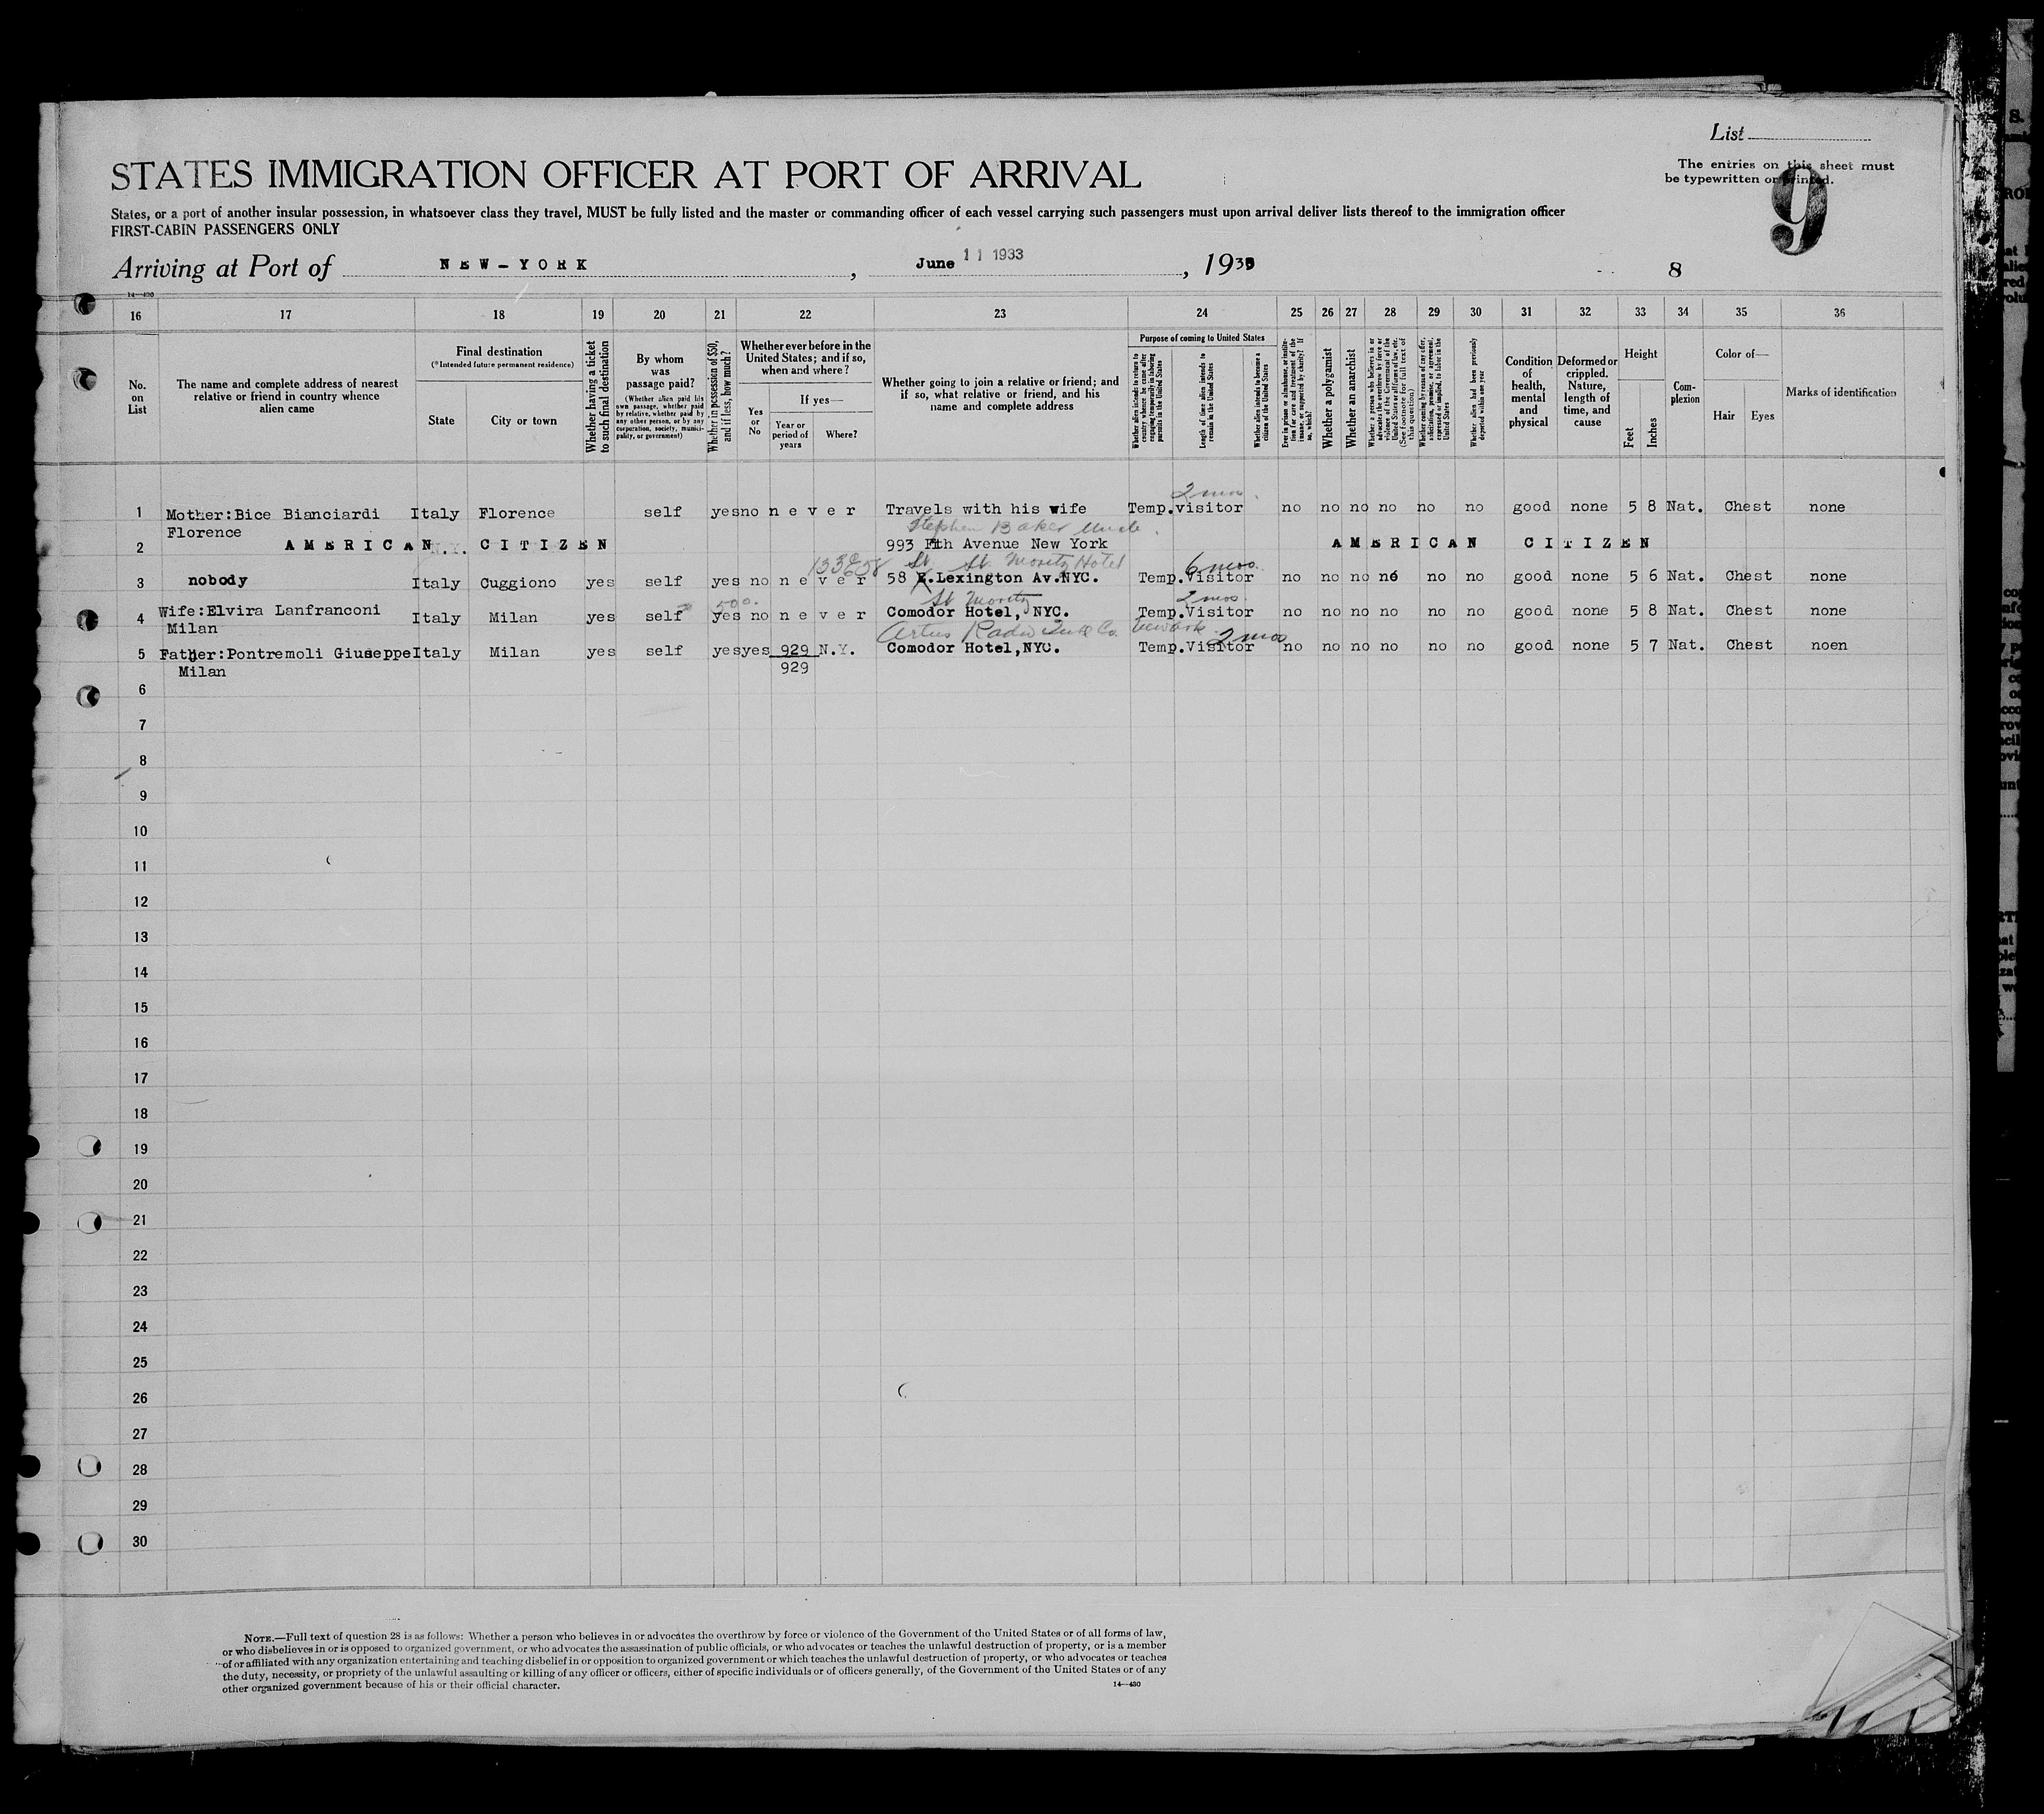 List
STATES IMMIGRATION OFFICER AT PORT OF ARRIVAL
The entries on this sheet must
be typewritten or printed.
9
States, or a port of another insular possession, in whatsoever class they travel, MUST be fully listed and the master or commanding officer of each vessel carrying such passengers must upon arrival deliver lists thereof to the immigration officer
FIRST-CABIN PASSENGERS ONLY
Arriving at Port of NEW-YORK, June 11 1933, 1933
8
14—430
16 17 18 19 20 21 22 23 24 25 26 27 28 29 30 31 32 33 34 35 36
No. on List
The name and complete address of nearest relative or friend in country whence alien came
Final destination
(*Intended future permanent residence)
State
City or town
Whether having a ticket to such final destination
By whom was passage paid?
(Whether alien paid his own passage, whether paid by relative, whether paid by any other person, or by any corporation, society, municipality, or government)
Whether in possession of $50, and if less, how much?
Whether ever before in the United States; and if so, when and where?
Yes or No
If yes—
Year or period of years
Where?
Whether going to join a relative or friend; and if so, what relative or friend, and his name and complete address
Purpose of coming to United States
Whether alien intends to return to country whence he came after engaging temporarily in laboring pursuits in the United States
Length of time alien intends to remain in the United States
Whether alien intends to become a citizen of the United States
Ever in prison or almshouse, or institution for care and treatment of the insane, or supported by charity? If so, which?
Whether a polygamist
Whether an anarchist
Whether a person who believes in or advocates the overthrow by force or violence of the Government of the United States or all forms of law, etc. (See footnote for full text of this question)
Whether coming by reason of any offer, solicitation, promise, or agreement, expressed or implied, to labor in the United States
Whether alien had been previously deported within one year
Condition of health, mental and physical
Deformed or crippled. Nature, length of time, and cause
Height
Feet
Inches
Complexion
Color of—
Hair
Eyes
Marks of identification
2 mos.
1 Mother:Bice Bianciardi Italy Florence self yes no never Travels with his wife Temp.visitor no no no no no no good none 5 8 Nat. Chest none
Florence
Stephen Baker Uncle
2 AMERICAN CITIZEN 993 Fth Avenue New York AMERICAN CITIZEN
St. Moritz Hotel 6 mos.
3 nobody Italy Cuggiono yes self yes no never 58 E.Lexington Av.NYC. Temp.Visitor no no no no no no good none 5 6 Nat. Chest none
500. St Moritz 2 mos.
4 Wife:Elvira Lanfranconi Italy Milan yes self yes no never Comodor Hotel, NYC. Temp.Visitor no no no no no no good none 5 8 Nat. Chest none
Milan
Radio Co. Newark 2 mos
5 Father:Pontremoli Giuseppe Italy Milan yes self yes yes 929 N.Y. Comodor Hotel,NYC. Temp.Visitor no no no no no no good none 5 7 Nat. Chest noen
Milan 929
6
7
8
9
10
11
12
13
14
15
16
17
18
19
20
21
22
23
24
25
26
27
28
29
30
NOTE.—Full text of question 28 is as follows: Whether a person who believes in or advocates the overthrow by force or violence of the Government of the United States or of all forms of law,
or who disbelieves in or is opposed to organized government, or who advocates the assassination of public officials, or who advocates or teaches the unlawful destruction of property, or is a member
of or affiliated with any organization entertaining and teaching disbelief in or opposition to organized government or which teaches the unlawful destruction of property, or who advocates or teaches
the duty, necessity, or propriety of the unlawful assaulting or killing of any officer or officers, either of specific individuals or of officers generally, of the Government of the United States or of any
other organized government because of his or their official character.
14—430